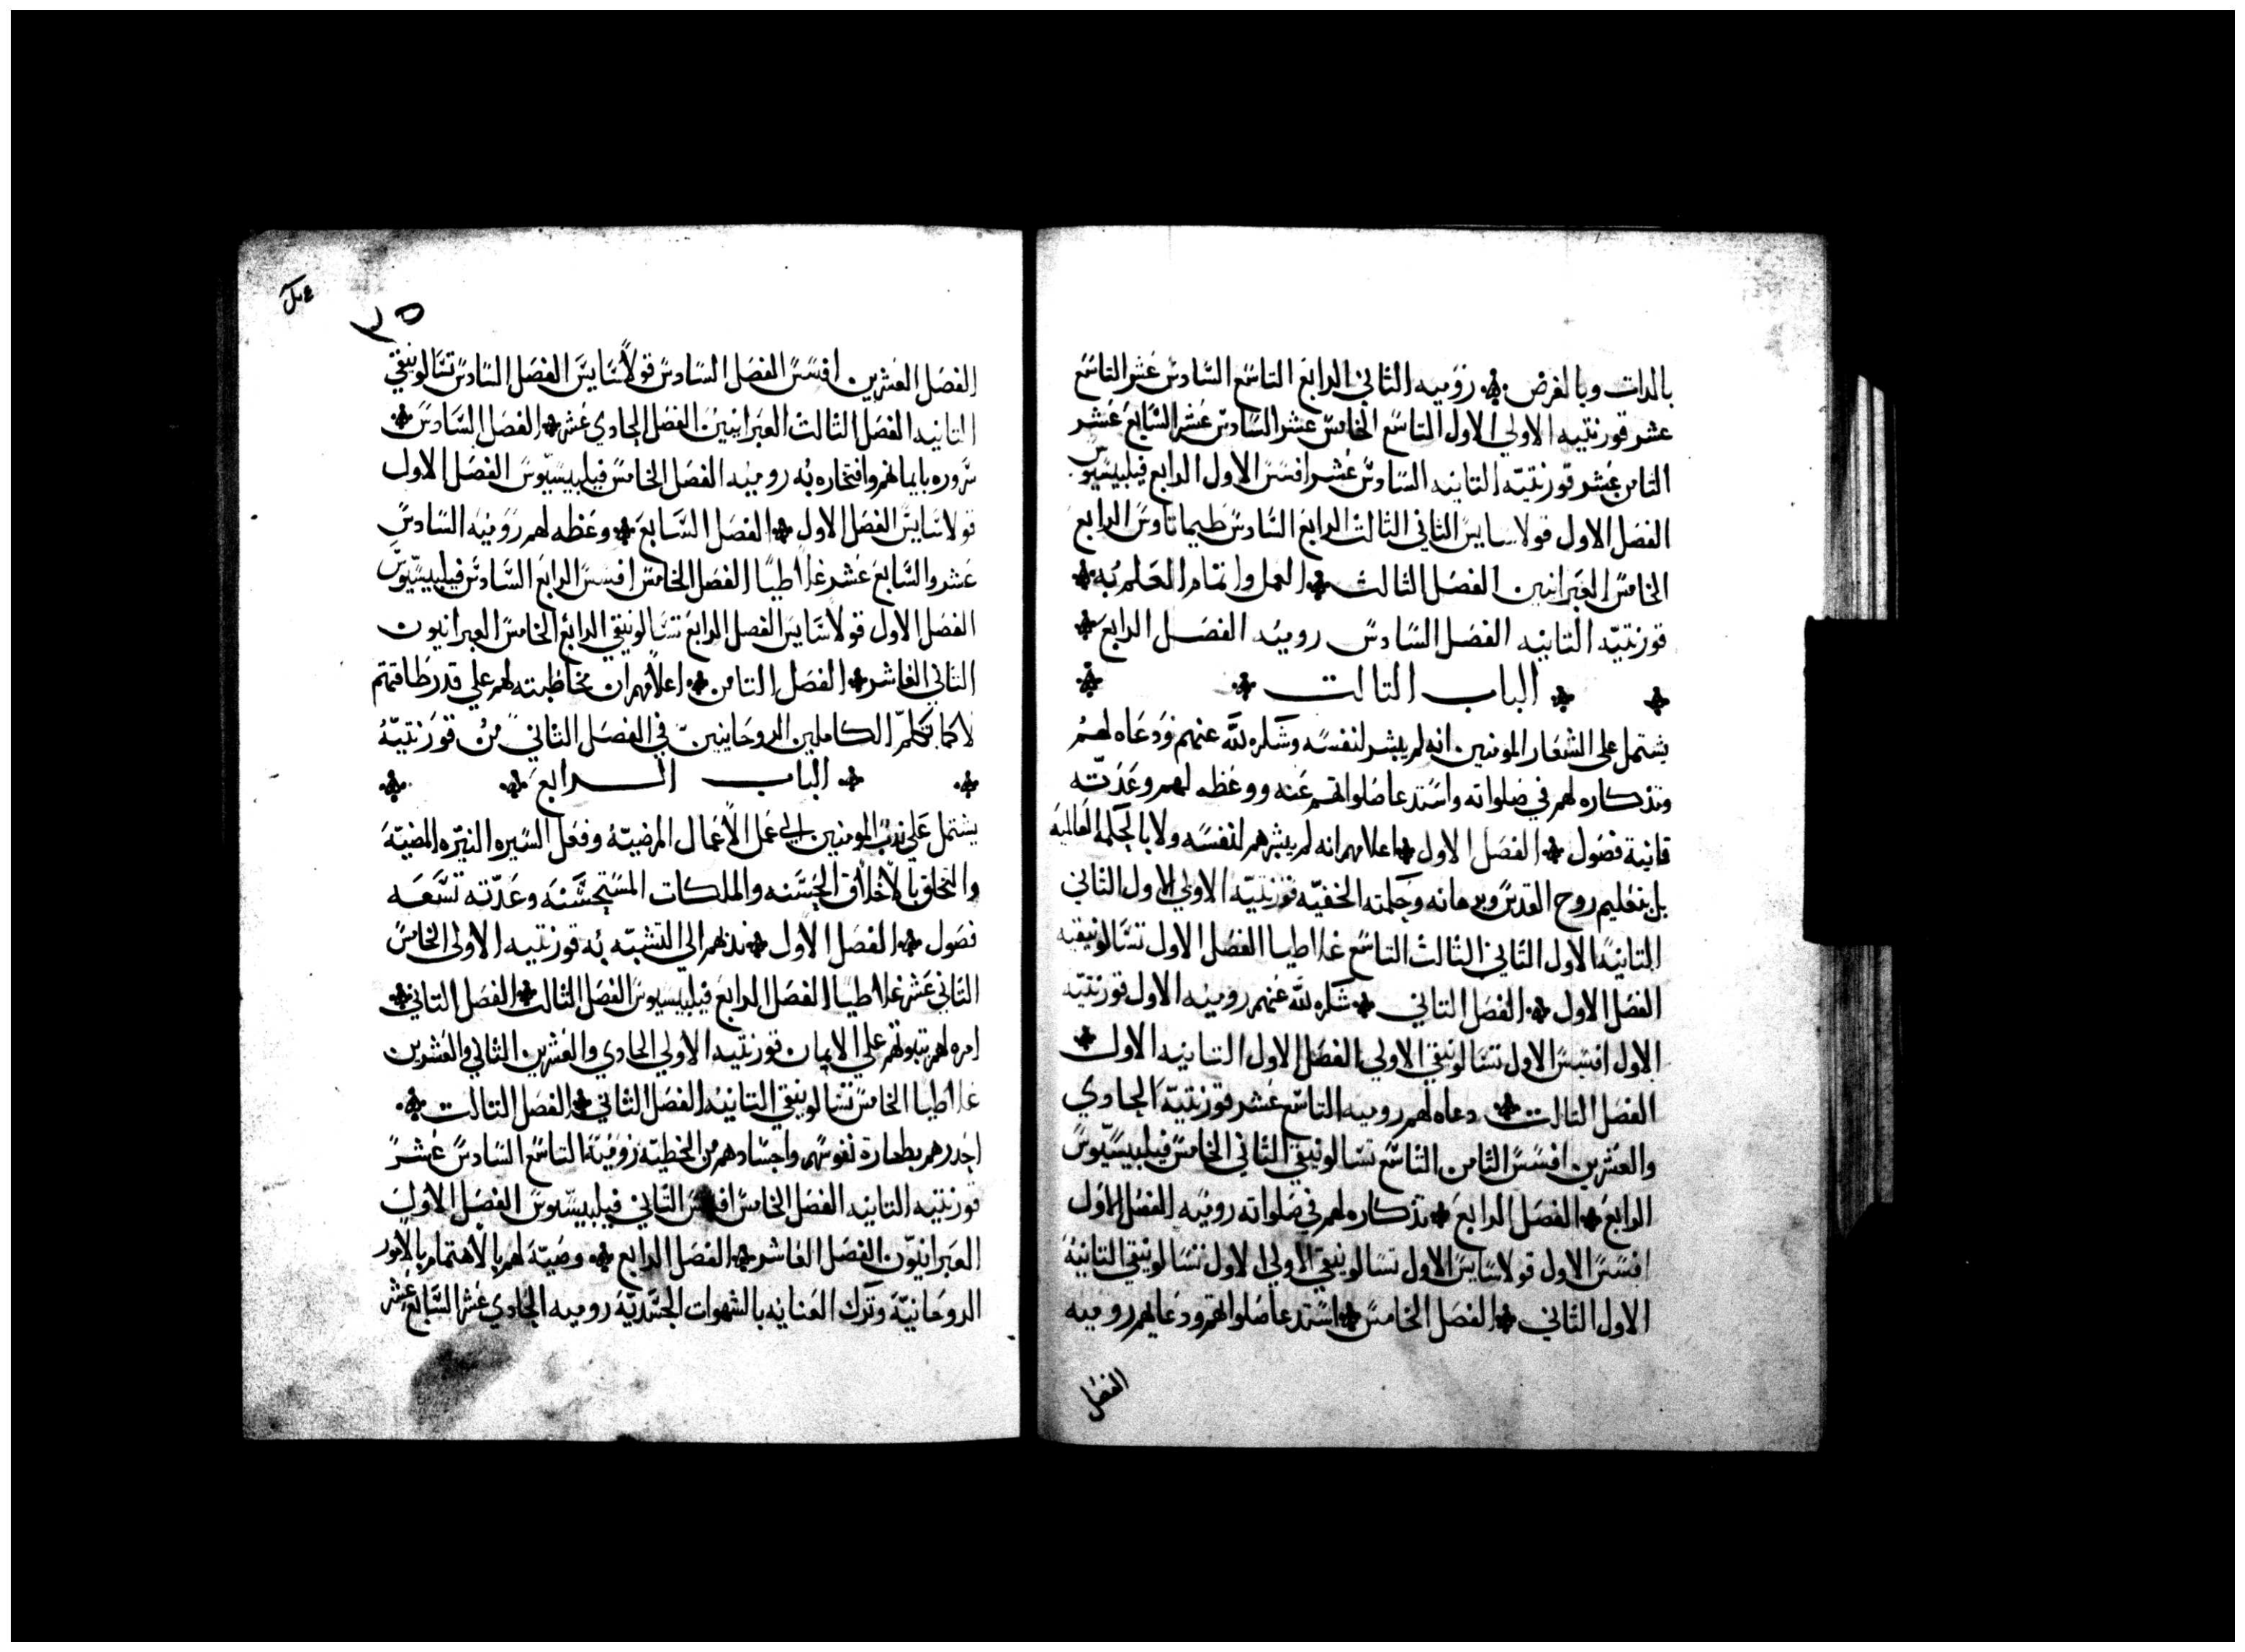 بالدات وبالعرض ۞ روميه الثاني الرابع التاسع السادس عشر التاسع
عشر قورنتيه الاولي الاول التاسع الخامس عشر السادس عشر السابع عشر
الثامن عشر قورنتيّه التانيه السادس عشر افسس الاول الرابع فيلبيسيوس
الفصل الاول قولاسايس الثاني الثالث الرابع السادس طيماتاوس الرابع
الخامس العبرانيين الفصل الثالث ۞ العمل واتمام العلم به ۞
قورنتيّه التانيه الفصل السادس روميه الفصل الرابع ۞
۞ ۞ الباب التالت ۞ ۞
يشتمل على اشعار المومنين انه لم يبشر لنفسه وشكره لله عنهم ودعاه لهم
وتذكاره لهم في صلواته واستدعا صلواتهم عنه ووعظه لهم وعدّته
تمانية فصول ۞ الفصل الاول ۞ اعلامهم انه لم يبشرهم لنفسه ولا بالحكمة العالميه
بل بتعليم روح القدس وبرهانه وحكمته الخفيّه قورنتيّه الاولي الاول الثاني
التانيه الاول الثاني الثالث التاسع غلاطيا الفصل الاول تسالونيقيه
الفصل الاول ۞ الفصل التاني ۞ شكره لله عنهم روميه الاول قورنتيّه
الاول افسس الاول تسالونيقي الاولي الفصل الاول التانيه الاول ۞
الفصل التالت ۞ دعاه لهم روميه التاسع عشر قورنتيّه الحادي
والعشرين افسس الثامن التاسع تسالونيقي الثاني الخامس فيلبيسيّوس
الرابع ۞ الفصل الرابع ۞ تذكاره لهم في صلواته روميه الفصل الاول
افسس الاول قولاسايس الاول تسالونيقي الاولي الاول تسالونيقي التانيه
الاول الثاني ۞ الفصل الخامس ۞ استدعا صلواتهم ودعايهم روميه
الفصل
٢٥
الفصل العشرين افسس الفصل السادس قولاسايس الفصل السادس تسالونيقي
التانيه الفصل الثالث العبرانيين الفصل الحادي عشر ۞ الفصل السادس ۞
سروره بايمانهم وافتخاره به روميه الفصل الخامس فيلبيسيّوس الفصل الاول
قولاسايس الفصل الاول ۞ الفصل السابع ۞ وعظه لهم روميه السادس
عشر والسابع عشر غلاطيا الفصل الخامس افسس الرابع السادس فيلبيسيّوس
الفصل الاول قولاسايس الفصل الرابع تسالونيقي الرابع الخامس العبرانيون
الثاني العاشر ۞ الفصل التامن ۞ اعلامهم ان مخاطبته لهم علي قدر طاقتهم
لا كما يكلم الكاملين الروحانيين في الفصل الثاني من قورنتيّه
۞ ۞ الباب الرابع ۞ ۞
يشتمل علي ندب المومنين الي عمل الأعمال المرضيّه وفعل السيره النيّره المضيّه
والتخلق بالأخلاق الحسنه والملكات المستحسنه وعدّته تسعه
فصول ۞ الفصل الأول ۞ ندبهم الي التشبّه به قورنتيه الاولى الخامس
الثاني عشر غلاطيا الفصل الرابع فيلبيسيوس الفصل الثالث ۞ الفصل التاني ۞
امره لهم بثبوتهم علي الايمان قورنتيه الأولي الحادي والعشرين الثاني والعشرين
غلاطيا الخامس تسالونيقي التانيه الفصل الثاني ۞ الفصل التالت ۞
امرهم بطهارة نفوسهم واجسادهم من الخطيّه روميّة التاسع السادس عشر
قورنتيه التانيه الفصل الخامس افسس الثاني فيلبيسّيوس الفصل الأول
العبرانيّون الفصل العاشر ۞ الفصل الرابع ۞ وصيّته لهم بالأهتمام بالأمور
الروحانيّة وترك العنايه بالشهوات الجسديّة روميه الحادي عشر السابع عشر